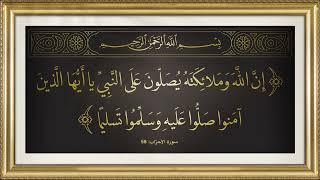 بسم الله الرحمن الرحيم
﴿ إِنَّ اللَّهَ وَمَلَائِكَتَهُ يُصَلُّونَ عَلَى النَّبِيِّ يَا أَيُّهَا الَّذِينَ
آمَنُوا صَلُّوا عَلَيْهِ وَسَلِّمُوا تَسْلِيمًا ﴾
سورة الاحزاب: 56